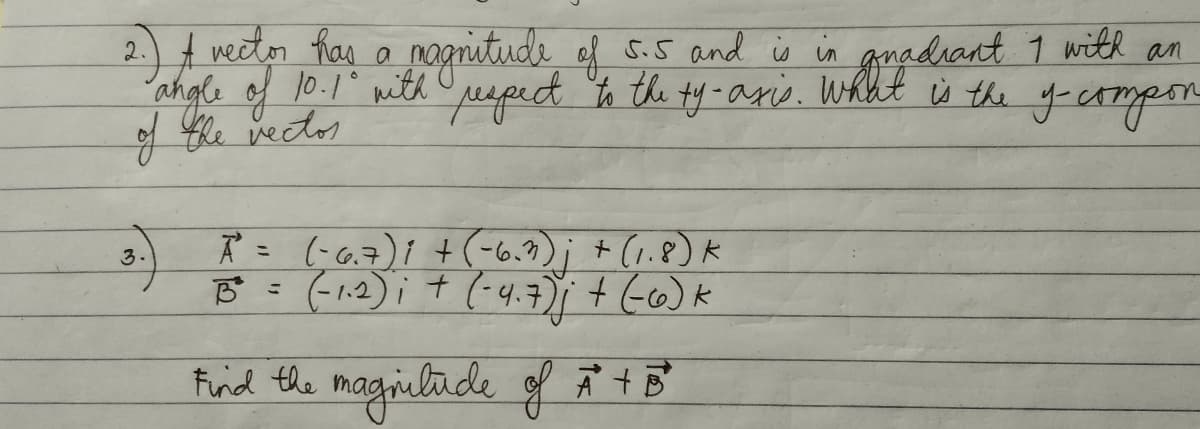 2.) A vector has a magnitude of 5.5 and is in quadrant 1 with an
angle of 10.1° with respect to the +y-axis. What is the y-compon
of the vector
3.) A⃗ = (-6.7)i + (-6.3)j + (1.8)k
B⃗ = (-1.2)i + (-4.7)j + (-6)k
Find the magnitude of A⃗ + B⃗